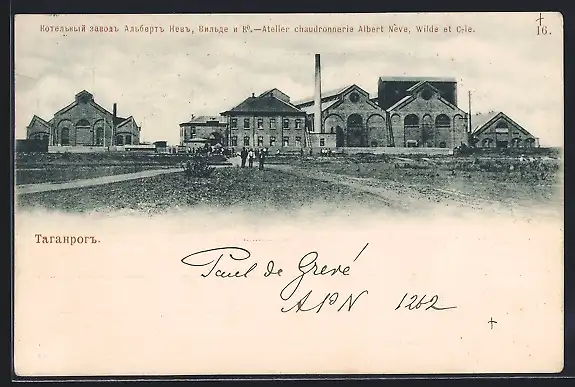 Котельный заводъ Альбертъ Невъ, Вильде и Ко.—Atelier chaudronnerie Albert Neve, Wilde et C-ie.
16.
Таганрогъ.
Paul de Grevé
APN 1262